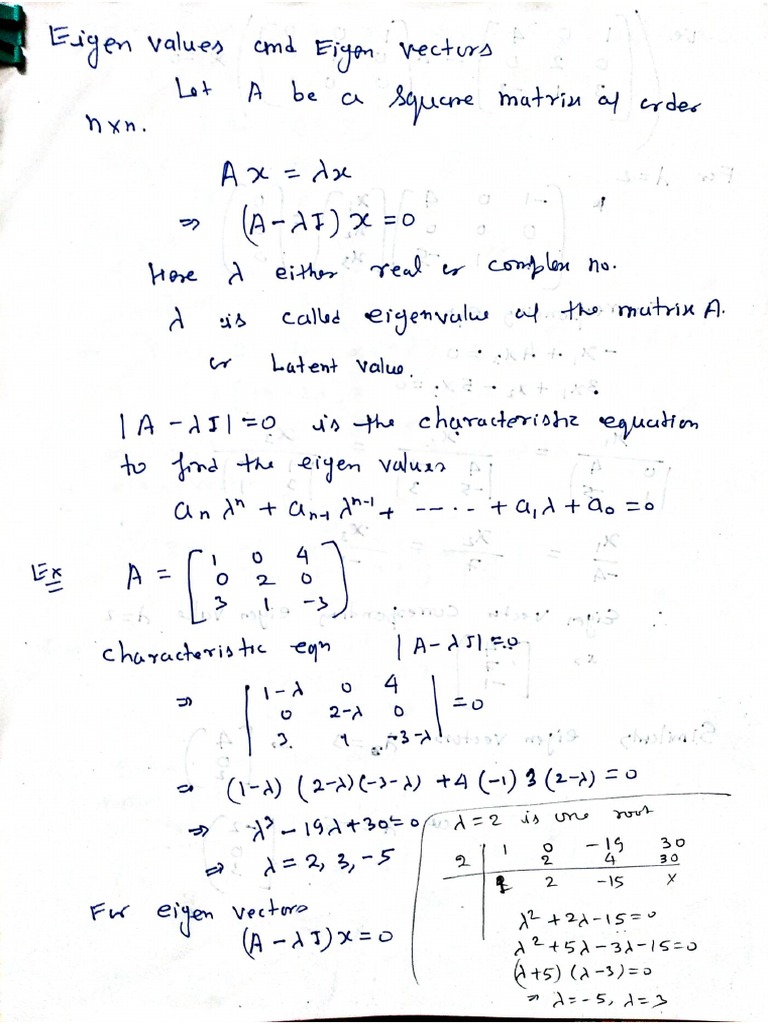 Eigen values and Eigen vectors
Let A be a square matrix of order
n×n.
Ax = λx
⇒ (A-λI)x = 0
Here λ either real or complex no.
λ is called eigenvalue of the matrix A.
or Latent value.
|A-λI| = 0 is the characteristic equation
to find the eigen values
aₙλⁿ + aₙ₋₁λⁿ⁻¹ + ----- + a₁λ + a₀ = 0
Ex A = [ 1 0 4
0 2 0
3 1 -3 ]
characteristic eqn |A-λI| = 0
⇒ | 1-λ 0 4
0 2-λ 0
3 1 -3-λ | = 0
⇒ (1-λ) (2-λ)(-3-λ) + 4(-1) 3 (2-λ) = 0
⇒ λ³ - 19λ + 30 = 0
⇒ λ = 2, 3, -5
For eigen vectors
(A-λI)x = 0
λ=2 is one root
2 | 1 0 -19 30
2 4 30
1 2 -15 x
λ² + 2λ - 15 = 0
λ² + 5λ - 3λ - 15 = 0
(λ+5) (λ-3) = 0
⇒ λ = -5, λ = 3